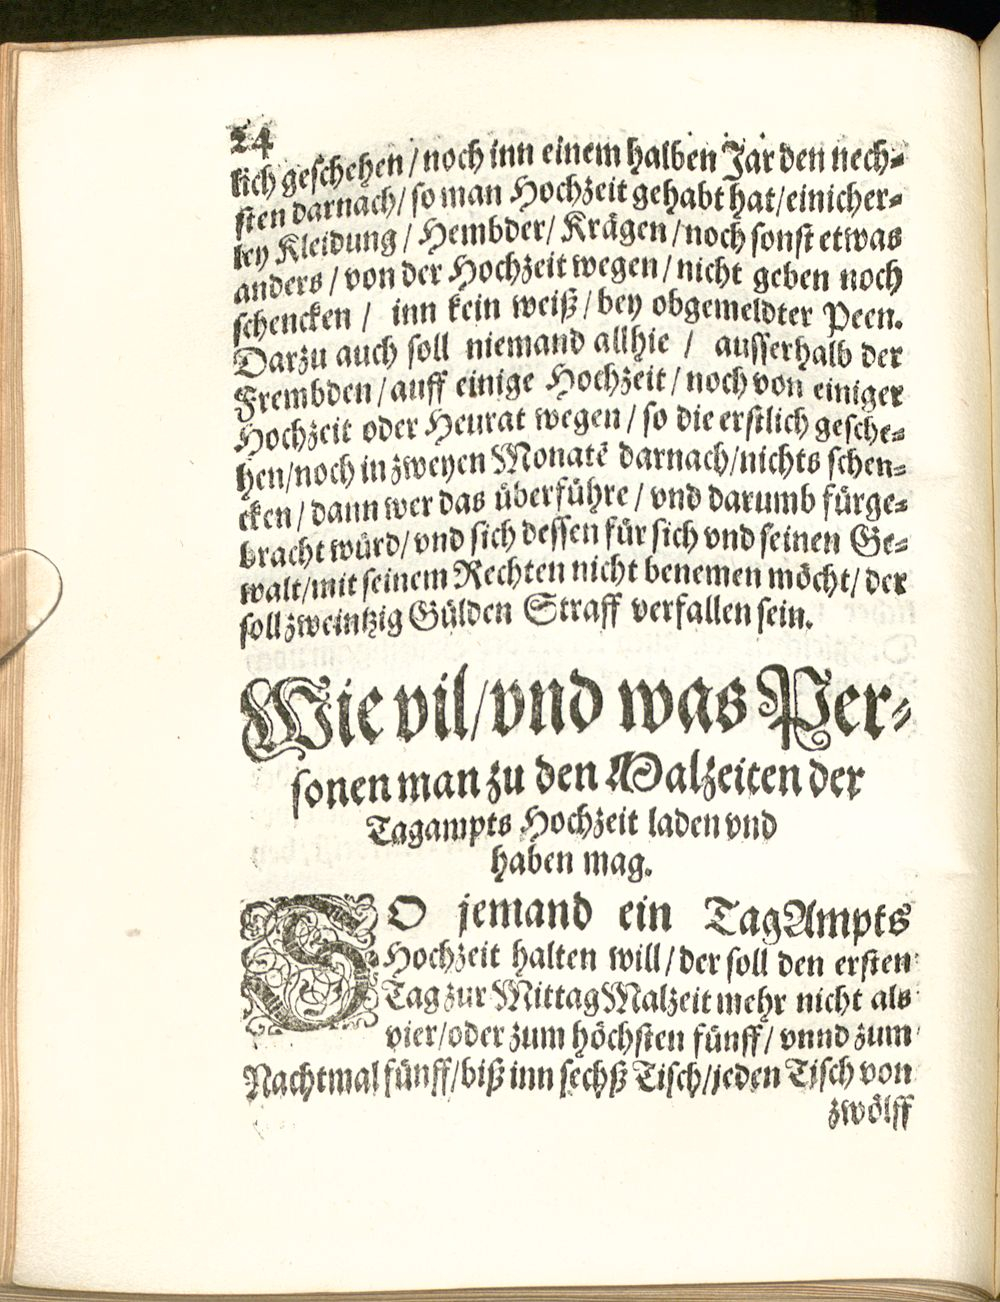 24
lich geschehen / noch inn einem halben Jar den nech⸗
sten darnach / so man Hochzeit gehabt hat / einicher⸗
ley Kleidung / Hembder / Krägen / noch sonst etwas
anders / von der Hochzeit wegen / nicht geben noch
schencken / inn kein weiß / bey obgemeldter Peen.
Darzu auch soll niemand allhie / ausserhalb der
Frembden / auff einige Hochzeit / noch von einiger
Hochzeit oder Heurat wegen / so die erstlich gesche⸗
hen / noch in zweyen Monatẽ darnach / nichts schen⸗
cken / dann wer das überführe / vnd darumb fürge⸗
bracht würd / vnd sich dessen für sich vnd seinen Ge⸗
walt / mit seinem Rechten nicht benemen möcht / der
soll zweintzig Gülden Straff verfallen sein.
Wie vil / vnd was Per⸗
sonen man zu den Malzeiten der
Tagampts Hochzeit laden vnd
haben mag.
SO jemand ein TagAmpts
Hochzeit halten will / der soll den ersten
Tag zur MittagMalzeit mehr nicht als
vier / oder zum höchsten fünff / vnnd zum
Nachtmal fünff / biß inn sechß Tisch / jeden Tisch von
zwölff